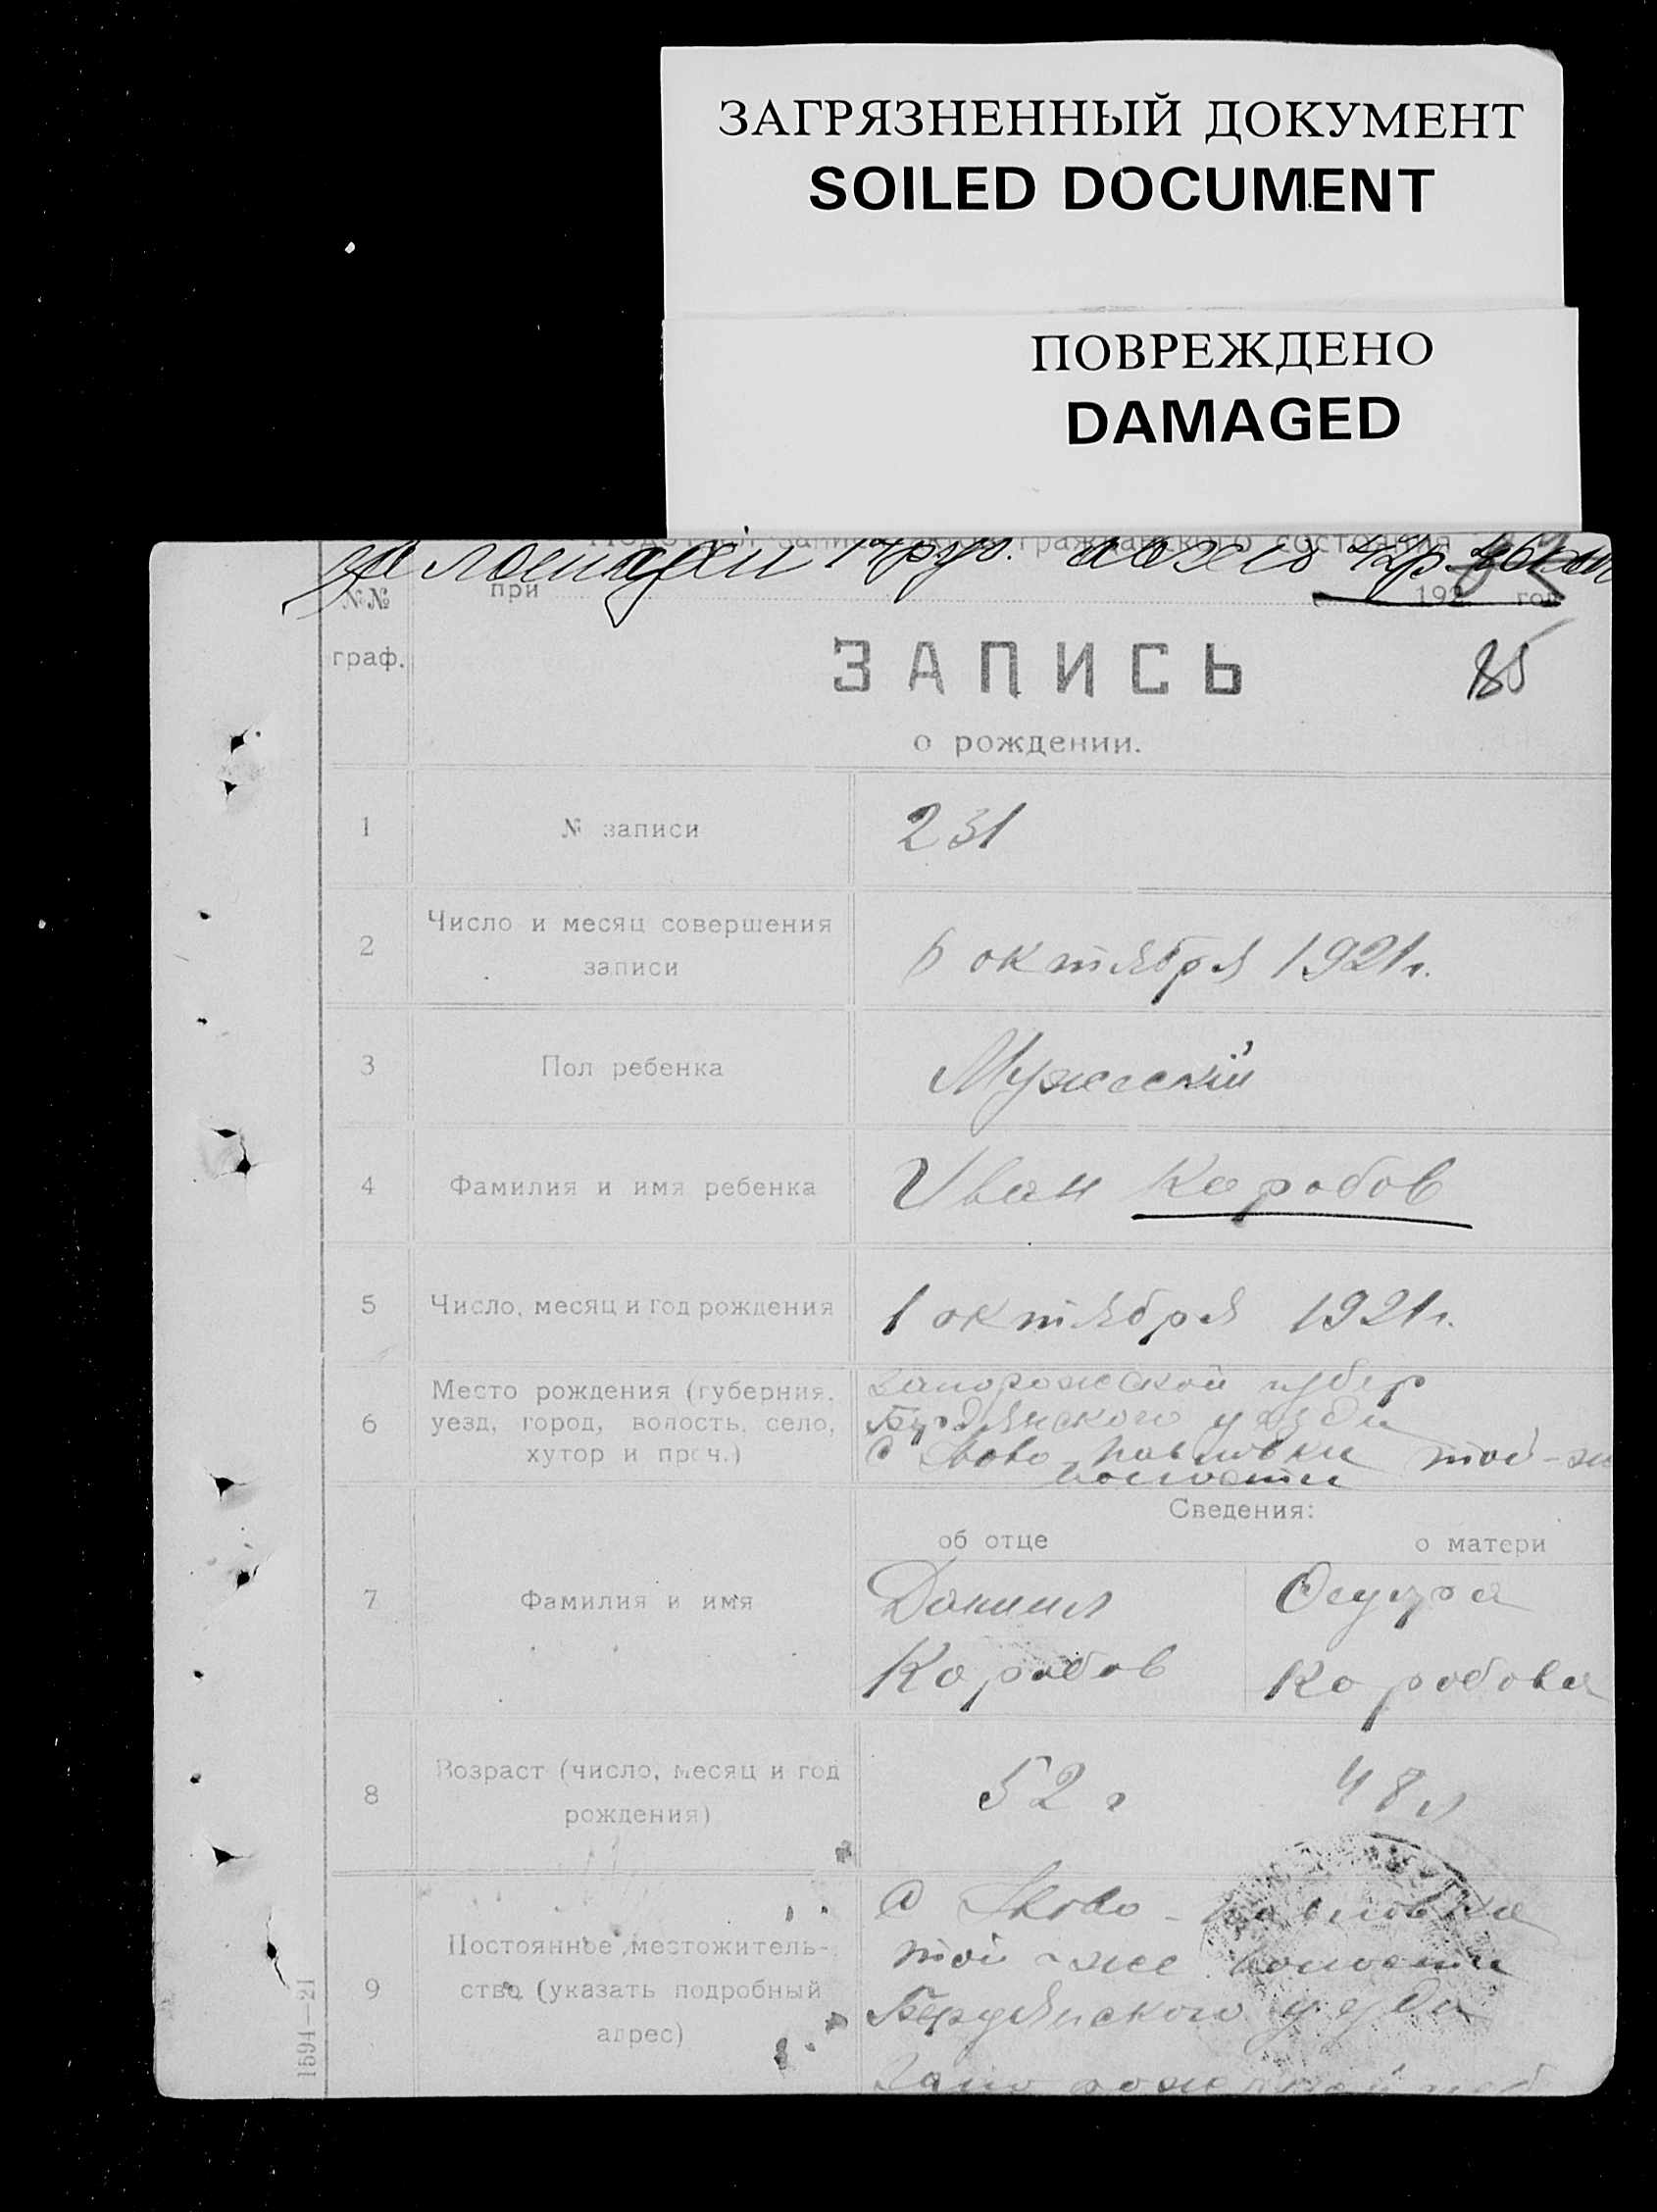 ЗАГРЯЗНЕННЫЙ ДОКУМЕНТ
SOILED DOCUMENT
ПОВРЕЖДЕНО
DAMAGED
гражданского состояния
№№ при 192 год
граф.
ЗАПИСЬ
85
о рождении.
1 № записи 231
2 Число и месяц совершения записи 6 октября 1921 г.
3 Пол ребенка Мужескій
4 Фамилия и имя ребенка Иван Коробов
5 Число, месяц и год рождения 1 октября 1921 г.
6 Место рождения (губерния, Запорожской губер
уезд, город, волость, село, Бердянского уезда
хутор и проч.) с Ново-Павловка той-же
волости
Сведения:
об отце о матери
7 Фамилия и имя Даниил
Коробов Коробова
8 Возраст (число, месяц и год рождения) 52 г 48 л
9 Постоянное местожитель- с Ново-Павловка
ство (указать подробный той-же волости
адрес) Бердянского уезда
1594—21